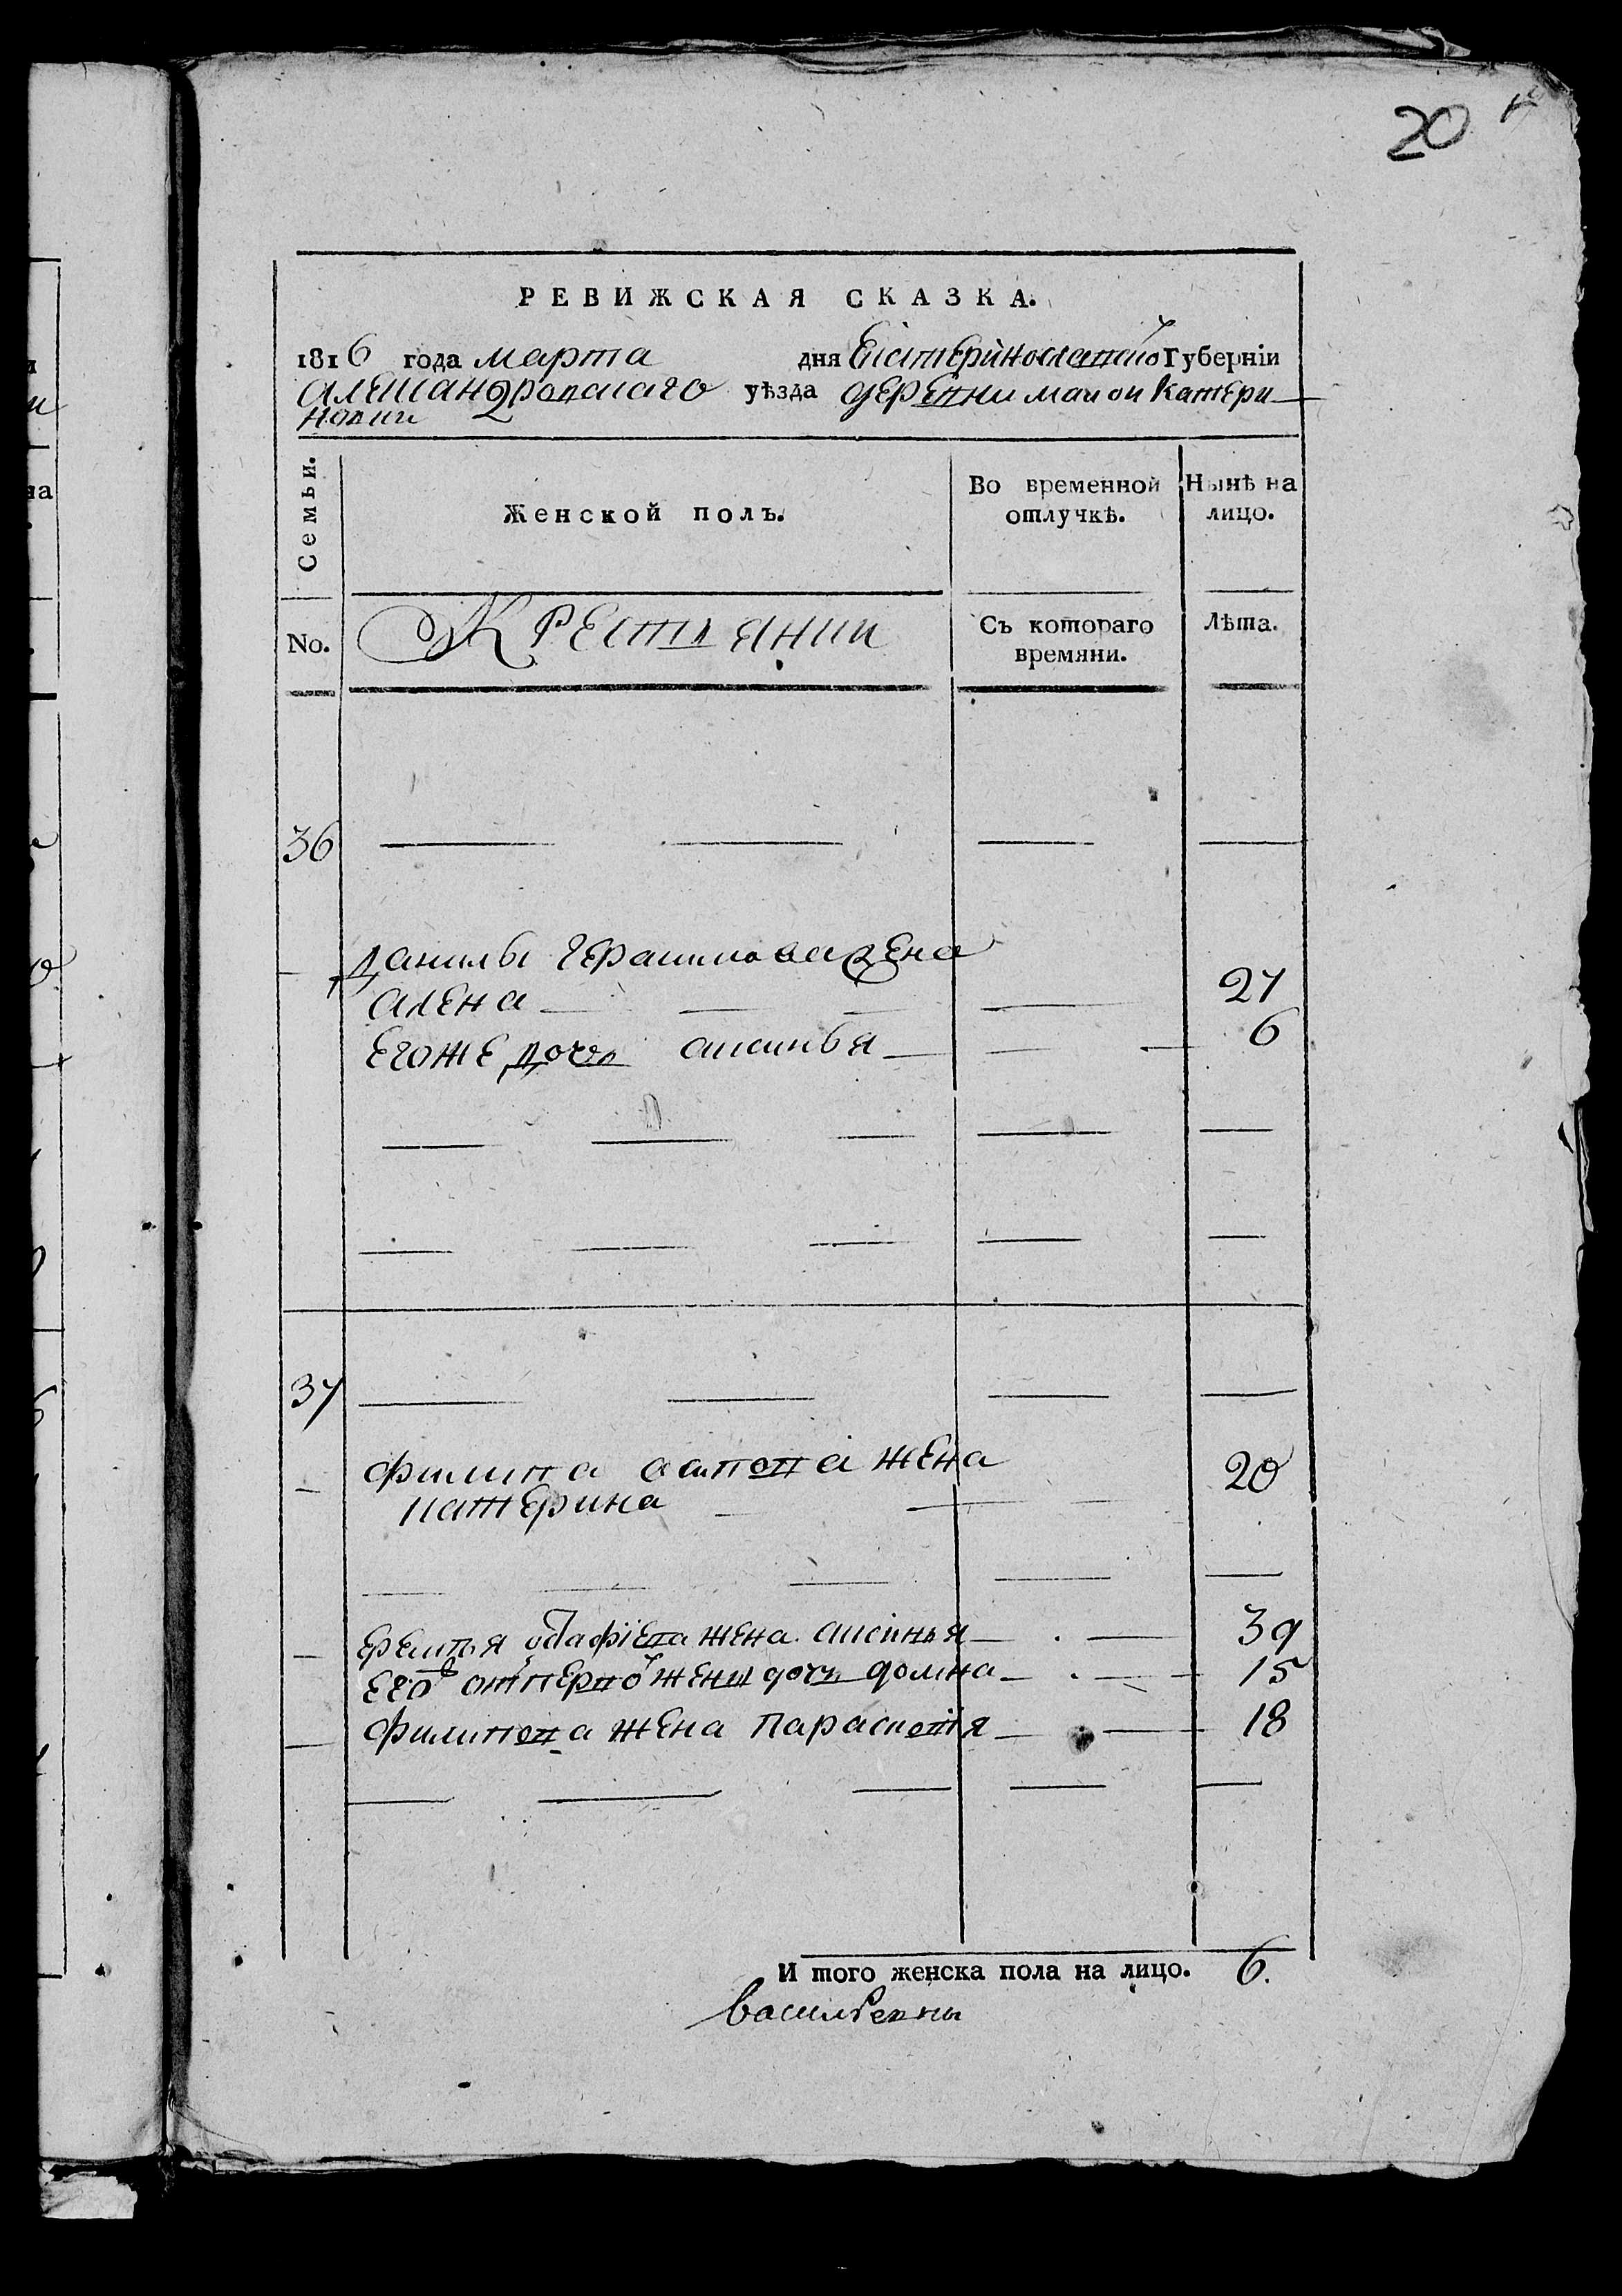 20
РЕВИЖСКАЯ СКАЗКА.
1816 года марта дня Екатеринославской Губерніи
Александровскаго уѣзда деревни малой Катери
новки
Семьи. Женской полъ. Во временной отлучкѣ. Нынѣ на лицо.
No. Крестьянки Съ котораго времяни. Лѣта.
36
Данилы Герасимова жена
алена 27
Егоже дочь аксинья 6
37
филипа жена
катерина 20
жена аксинья 39
его от первой жены дочь домна 15
филипова жена Парасковия 18
И того женска пола на лицо. 6.